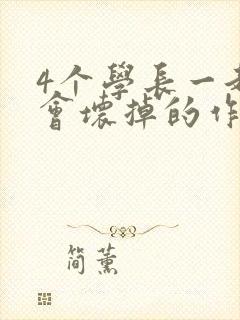 4个學長一
會壞掉的作
简薰